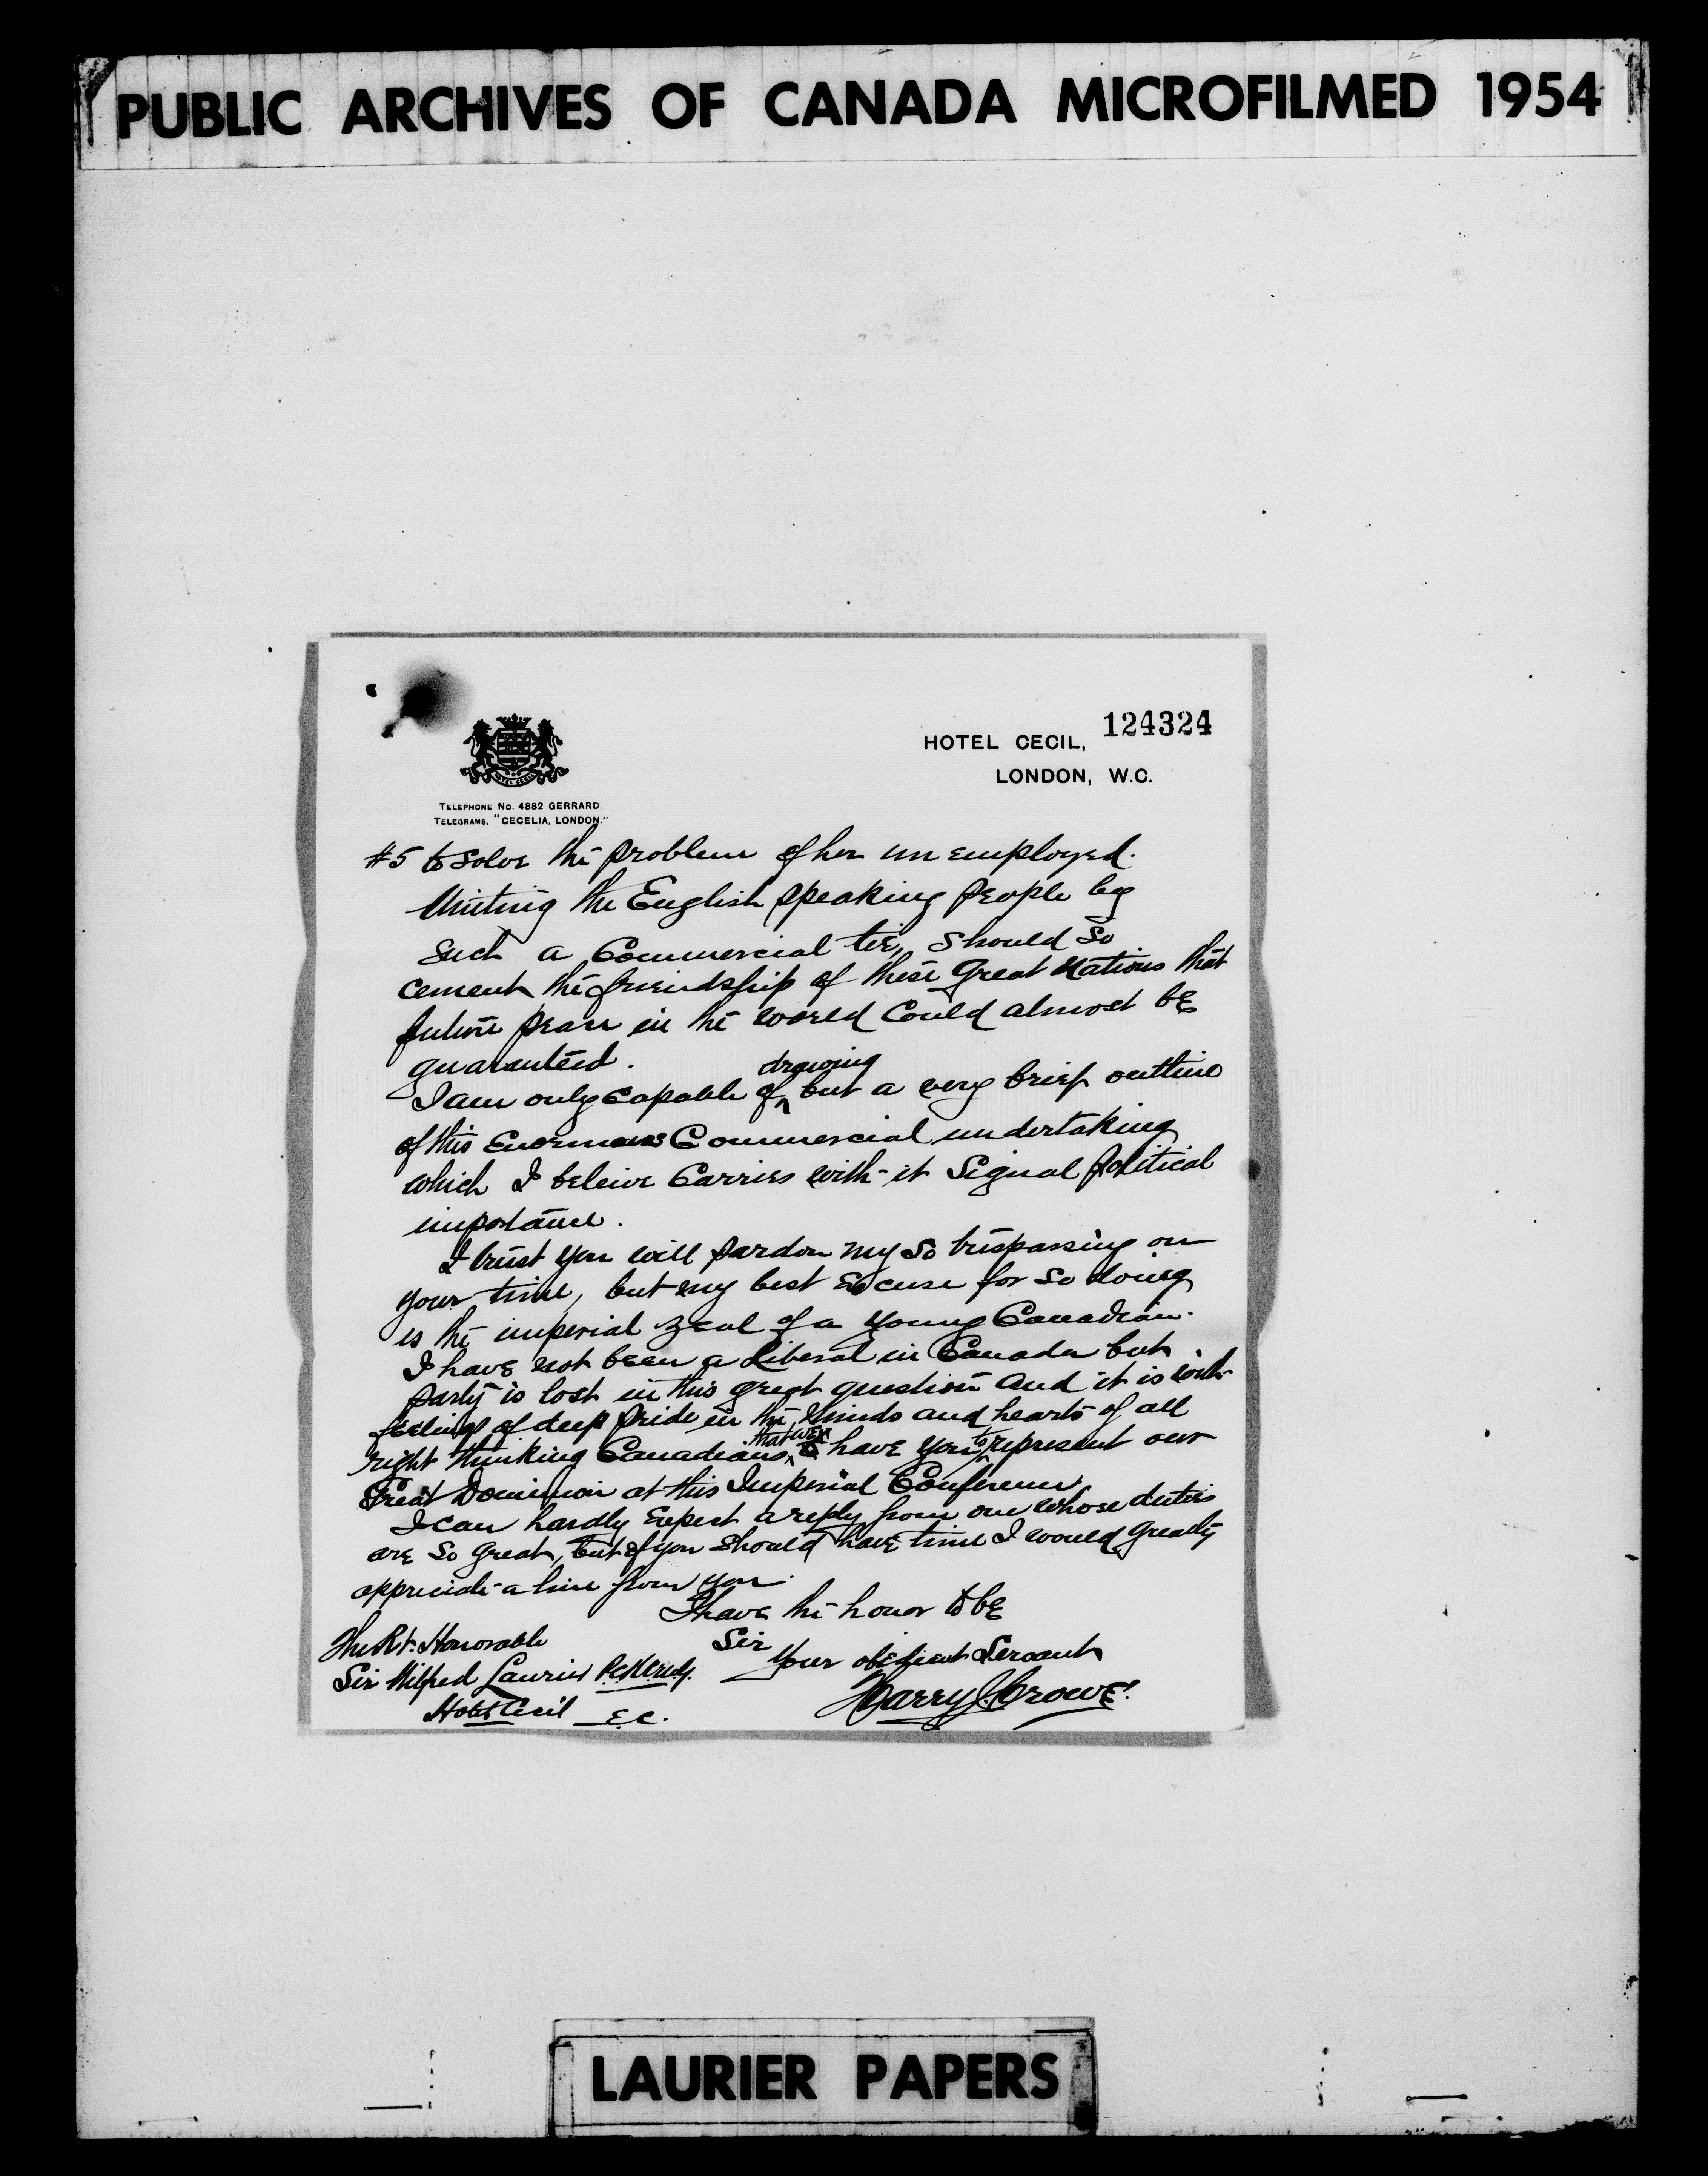 PUBLIC ARCHIVES OF CANADA MICROFILMED 1954
124324
HOTEL CECIL,
LONDON, W.C.
HOTEL CECIL
TELEPHONE NO. 4882 GERRARD.
TELEGRAMS, "CECELIA, LONDON."
#5 to solve the problem of her unemployed.
Uniting the English speaking people by
such a Commercial tie, should so
cement the friendship of these Great Nations that
future peace in the world could almost be
guaranteed.
drawing
I am only capable of ^ but a very brief outline
of this Enormous Commercial undertaking
which I beleive Carries with it Signal political
importance.
I trust you will pardon my so trespassing on
your time, but my best excuse for so doing
is the imperial zeal of a young Canadian.
I have not been a Liberal in Canada but
party is lost in this great question and it is with
feeling of deep pride in the minds and hearts of all
that we to
right thinking Canadians ^ have you ^ represent our
Great Dominion at this Imperial Conference.
I can hardly Expect a reply from one whose duties
are so great, but if you should have time I would greatly
appreciate a line from you.
I have the honor to be
Sir
Your obedient Servant
Harry J. Crowe
The Rt. Honorable
Sir Wilfred Laurier
Hotel Cecil E.C.
LAURIER PAPERS